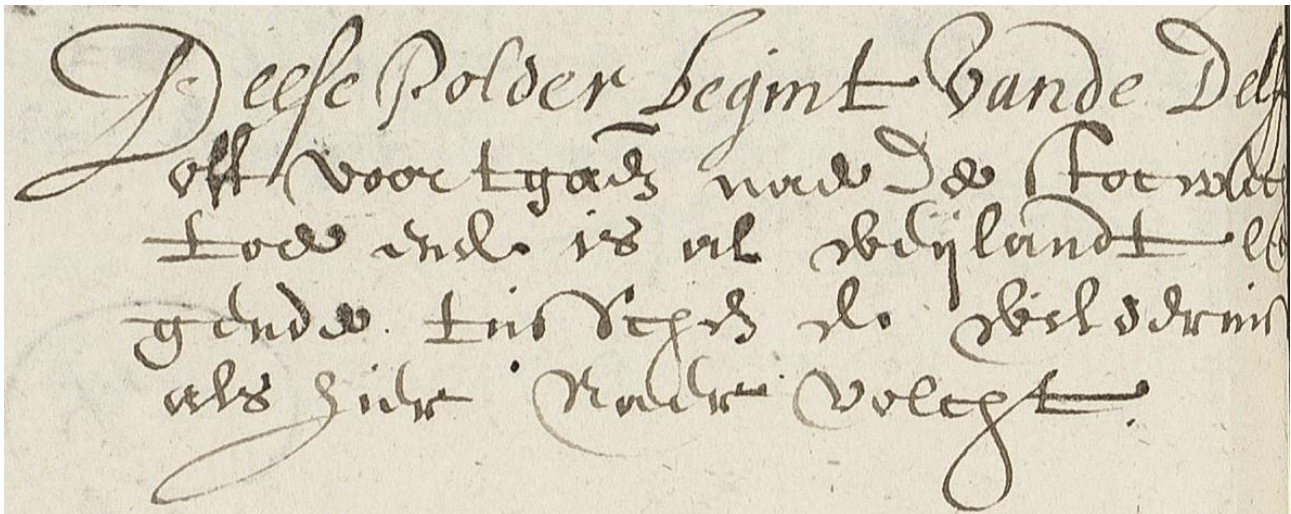 Deese Polder begint vande Delf
offt voortgaen nae de Stoewech
toe ende is al weijlandt le
gende tusschen de
als hier naer volcht